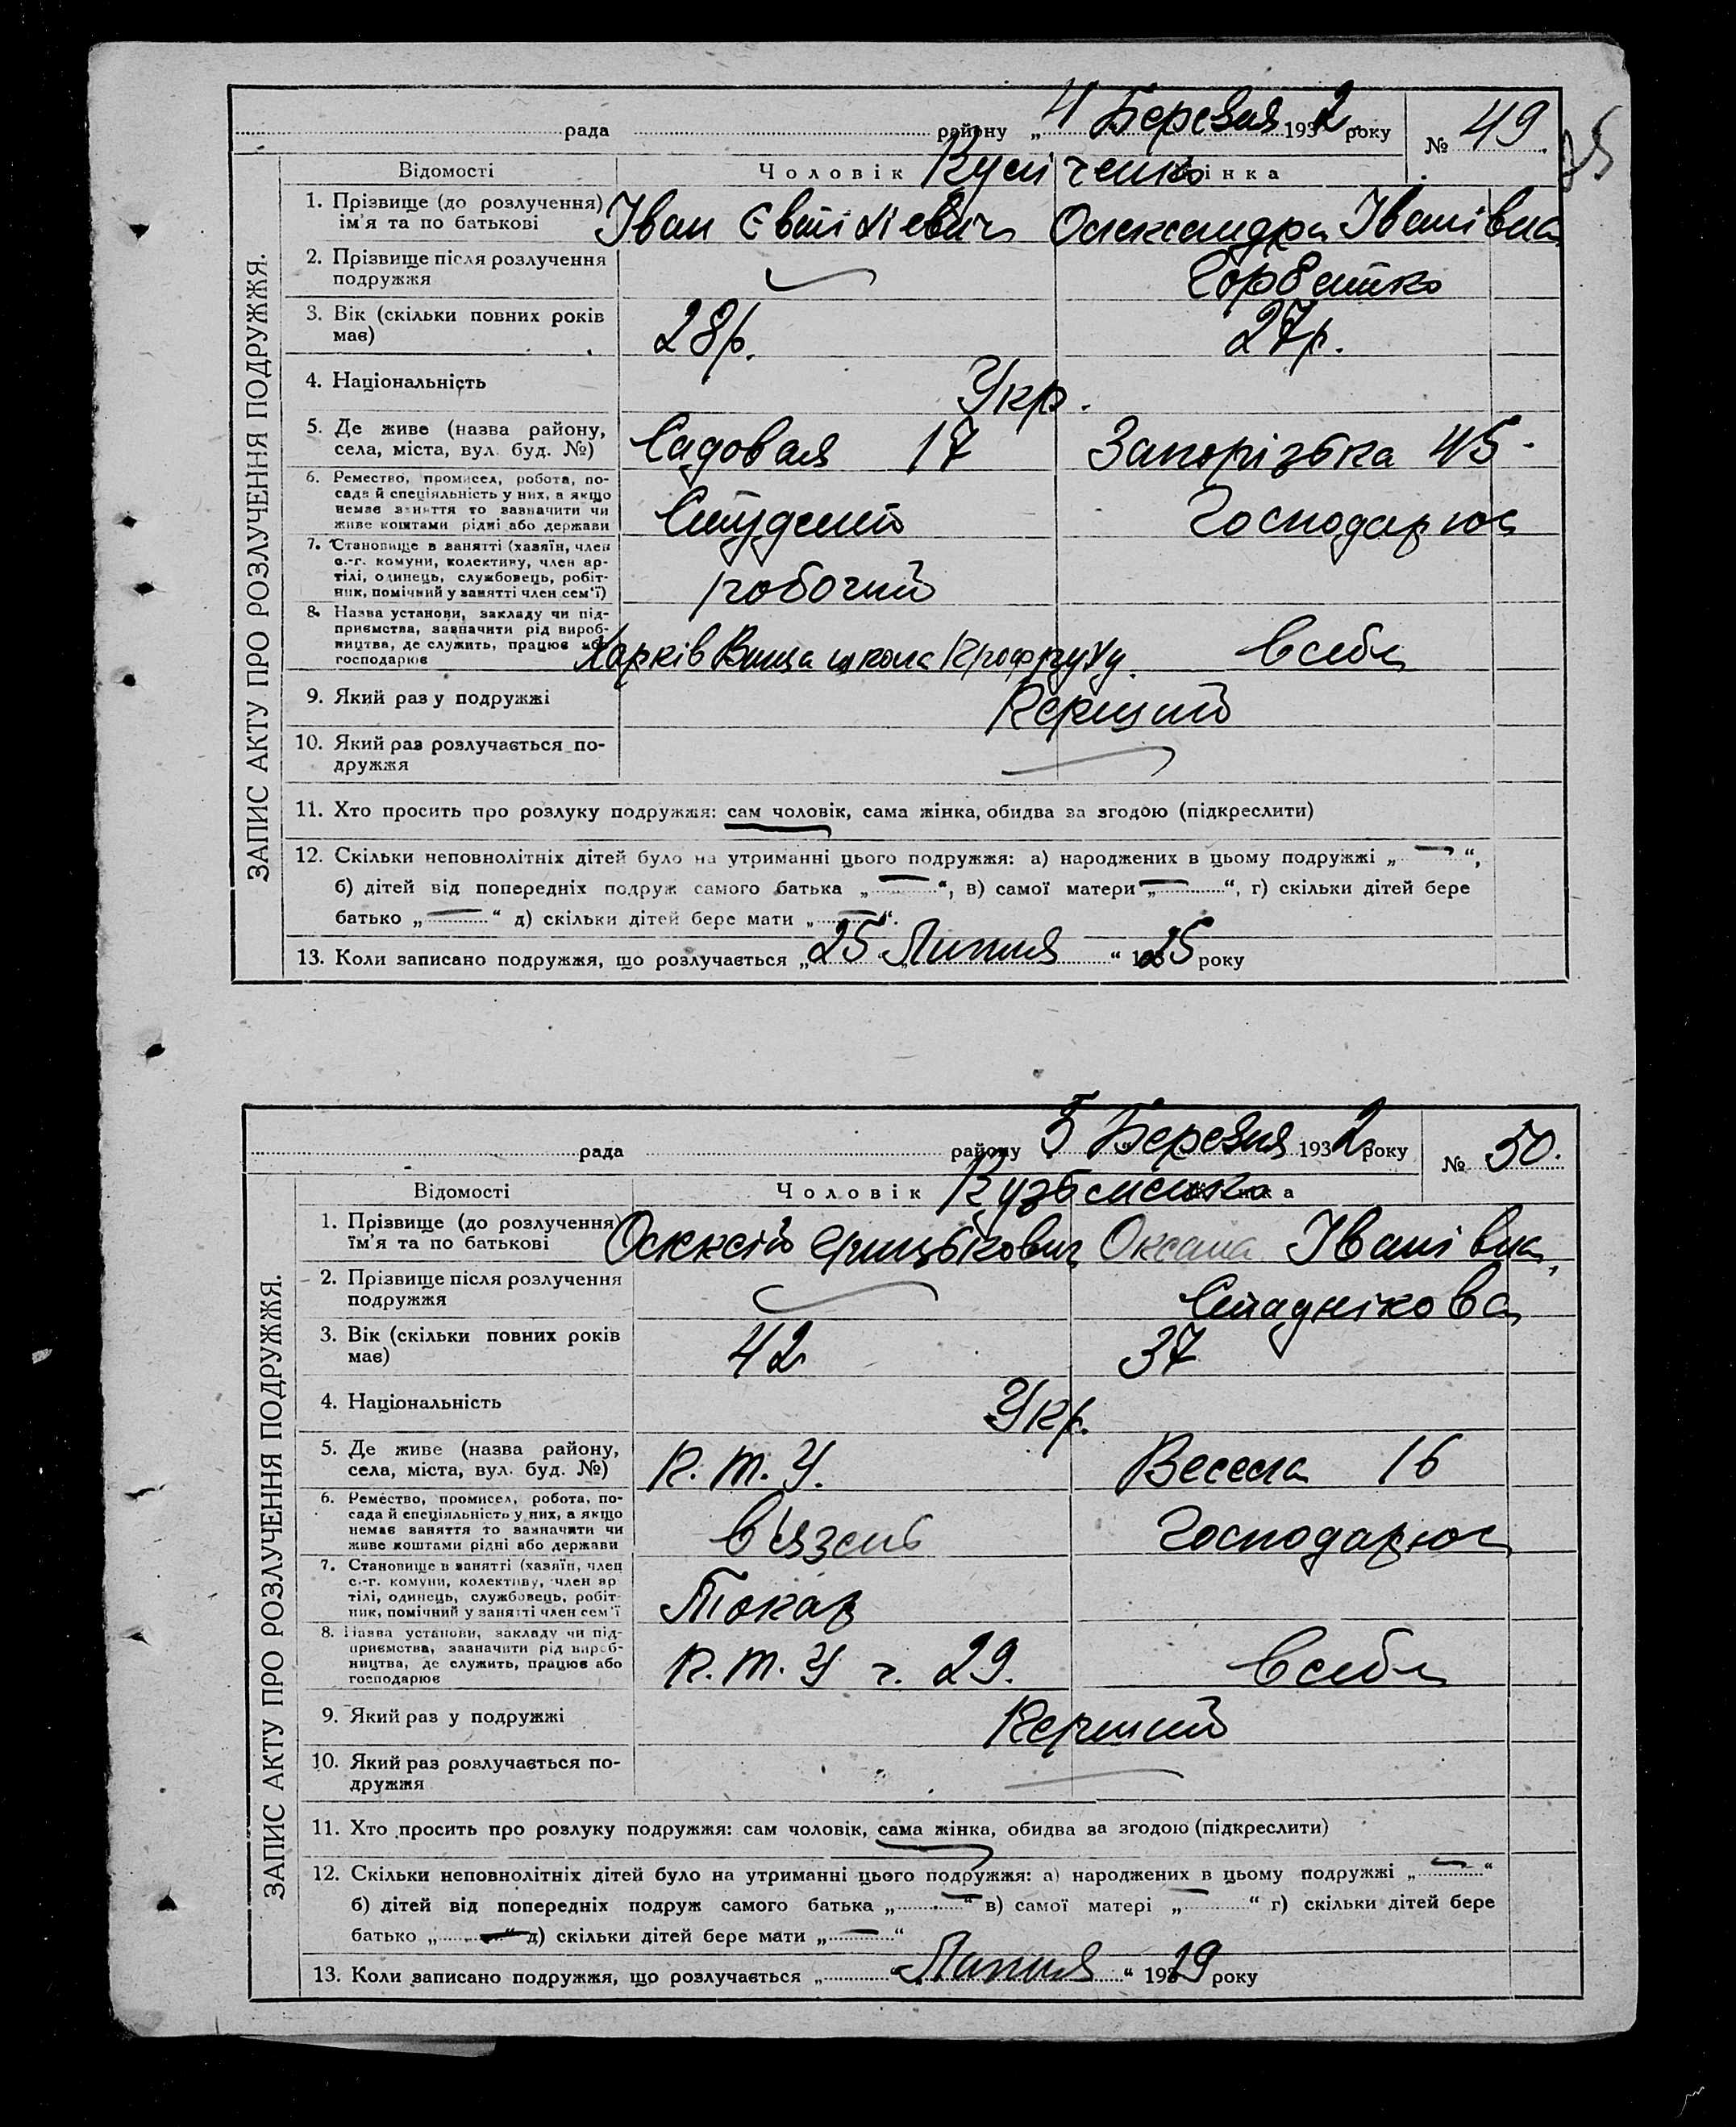 рада району „ 4 Березня 1932 року № 49.
25
Відомості Чоловік Жінка
Кулі ченко
1. Прізвище (до розлучення) ім'я та по батькові
Іван Олександра Іванівна
2. Прізвище після розлучення подружжя
Горбатко
3. Вік (скільки повних років має)
28р. 27р.
4. Національність
Укр.
5. Де живе (назва району, села, міста, вул. буд. №)
Садовая 17 Запорізька 45.
6. Ремество, промисел, робота, посада й спеціяльність у них, а якщо немає заняття то зазначити чи живе коштами рідні або держави
Студент Господарює
7. Становище в занятті (хазяїн, член с.-г. комуни, колективу, член артілі, одинець, службовець, робітник, помічний у занятті член сем'ї)
робочий
8. Назва установи, закладу чи підприємства, зазначити рід виробництва, де служить, працює або господарює
Харків Вища школа Профруху. в себе
9. Який раз у подружжі
Перший
10. Який раз розлучається подружжя
11. Хто просить про розлуку подружжя: сам чоловік, сама жінка, обидва за згодою (підкреслити)
12. Скільки неповнолітніх дітей було на утриманні цього подружжя: а) народжених в цьому подружжі „ — “,
б) дітей від попередніх подруж самого батька „ — “, в) самої матери „ — “, г) скільки дітей бере
батько „ — “ д) скільки дітей бере мати „ — “.
13. Коли записано подружжя, що розлучається „ 25 “ Липня “ 1925 року
ЗАПИС АКТУ ПРО РОЗЛУЧЕННЯ ПОДРУЖЖЯ.
рада району 5 Березня 1932 року № 50.
Відомості Чоловік Жінка
Кузьменко
1. Прізвище (до розлучення) ім'я та по батькові
Олексій Грицькович Оксана Іванівна,
2. Прізвище після розлучення подружжя
Стаднікова
3. Вік (скільки повних років має)
42 37
4. Національність
Укр.
5. Де живе (назва району, села, міста, вул. буд. №)
П.Т.У. Весела 16
6. Ремество, промисел, робота, посада й спеціяльність у них, а якщо немає заняття то зазначити чи живе коштами рідні або держави
в'язень Господарює
7. Становище в занятті (хазяїн, член с.-г. комуни, колективу, член артілі, одинець, службовець, робітник, помічний у занятті член сем'ї
Токар
8. Назва установи, закладу чи підприємства, зазначити рід виробництва, де служить, працює або господарює
П.Т.У ч. 29. в себе
9. Який раз у подружжі
Перший
10. Який раз розлучається подружжя
11. Хто просить про розлуку подружжя: сам чоловік, сама жінка, обидва за згодою (підкреслити)
12. Скільки неповнолітніх дітей було на утриманні цього подружжя: а) народжених в цьому подружжі „ — “
б) дітей від попередніх подруж самого батька „ — “ в) самої матері „ — “ г) скільки дітей бере
батько „ — “ д) скільки дітей бере мати „ — “
13. Коли записано подружжя, що розлучається „ “ Липня “ 1929 року
ЗАПИС АКТУ ПРО РОЗЛУЧЕННЯ ПОДРУЖЖЯ.